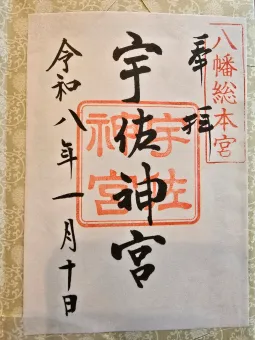 八幡総本宮
奉拝
宇佐神宮
宇佐神宮
令和八年一月十日